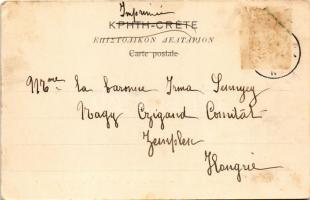 Imprimé
ΚΡΗΤΗ-CRÈTE
ΕΠΙΣΤΟΛΙΚΟΝ ΔΕΛΤΑΡΙΟΝ
Carte postale
La Baronne Irma
Nagy Czigand Comitat
Zemplen
Hongrie